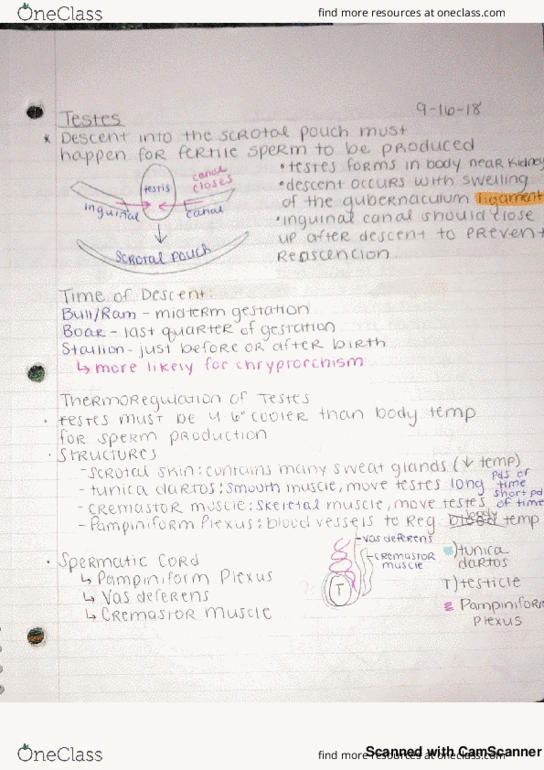 OneClass
find more resources at oneclass.com
9-16-18
Testes
* Descent into the scrotal pouch must
happen for fertile sperm to be produced
• testes forms in body near kidney
• descent occurs with swelling
of the gubernaculum ligament
• inguinal canal should close
up after descent to prevent
Reascencion
canal
closes
testis
inguinal
canal
Scrotal pouch
Time of Descent:
Bull/Ram - midterm gestation
Boar - last quarter of gestation
Stallion - just before or after birth
↳ more likely for chryprorchism
Thermoregulation of Testes
• testes must be 4 6° cooler than body temp
for sperm production
• Structures
- scrotal skin: contains many sweat glands (↓ temp)
- tunica dartos: smooth muscle, move testes long pds of time
- cremastor muscle: skeletal muscle, move testes short pd of time
- Pampiniform Plexus: blood vessels to reg body temp
• Spermatic Cord
↳ Pampiniform Plexus
↳ Vas deferens
↳ Cremastor muscle
vas deferens
cremastor
muscle
T
) tunica
dartos
T) testicle
Pampiniform
Plexus
OneClass
find more resources at oneclass.com
Scanned with CamScanner